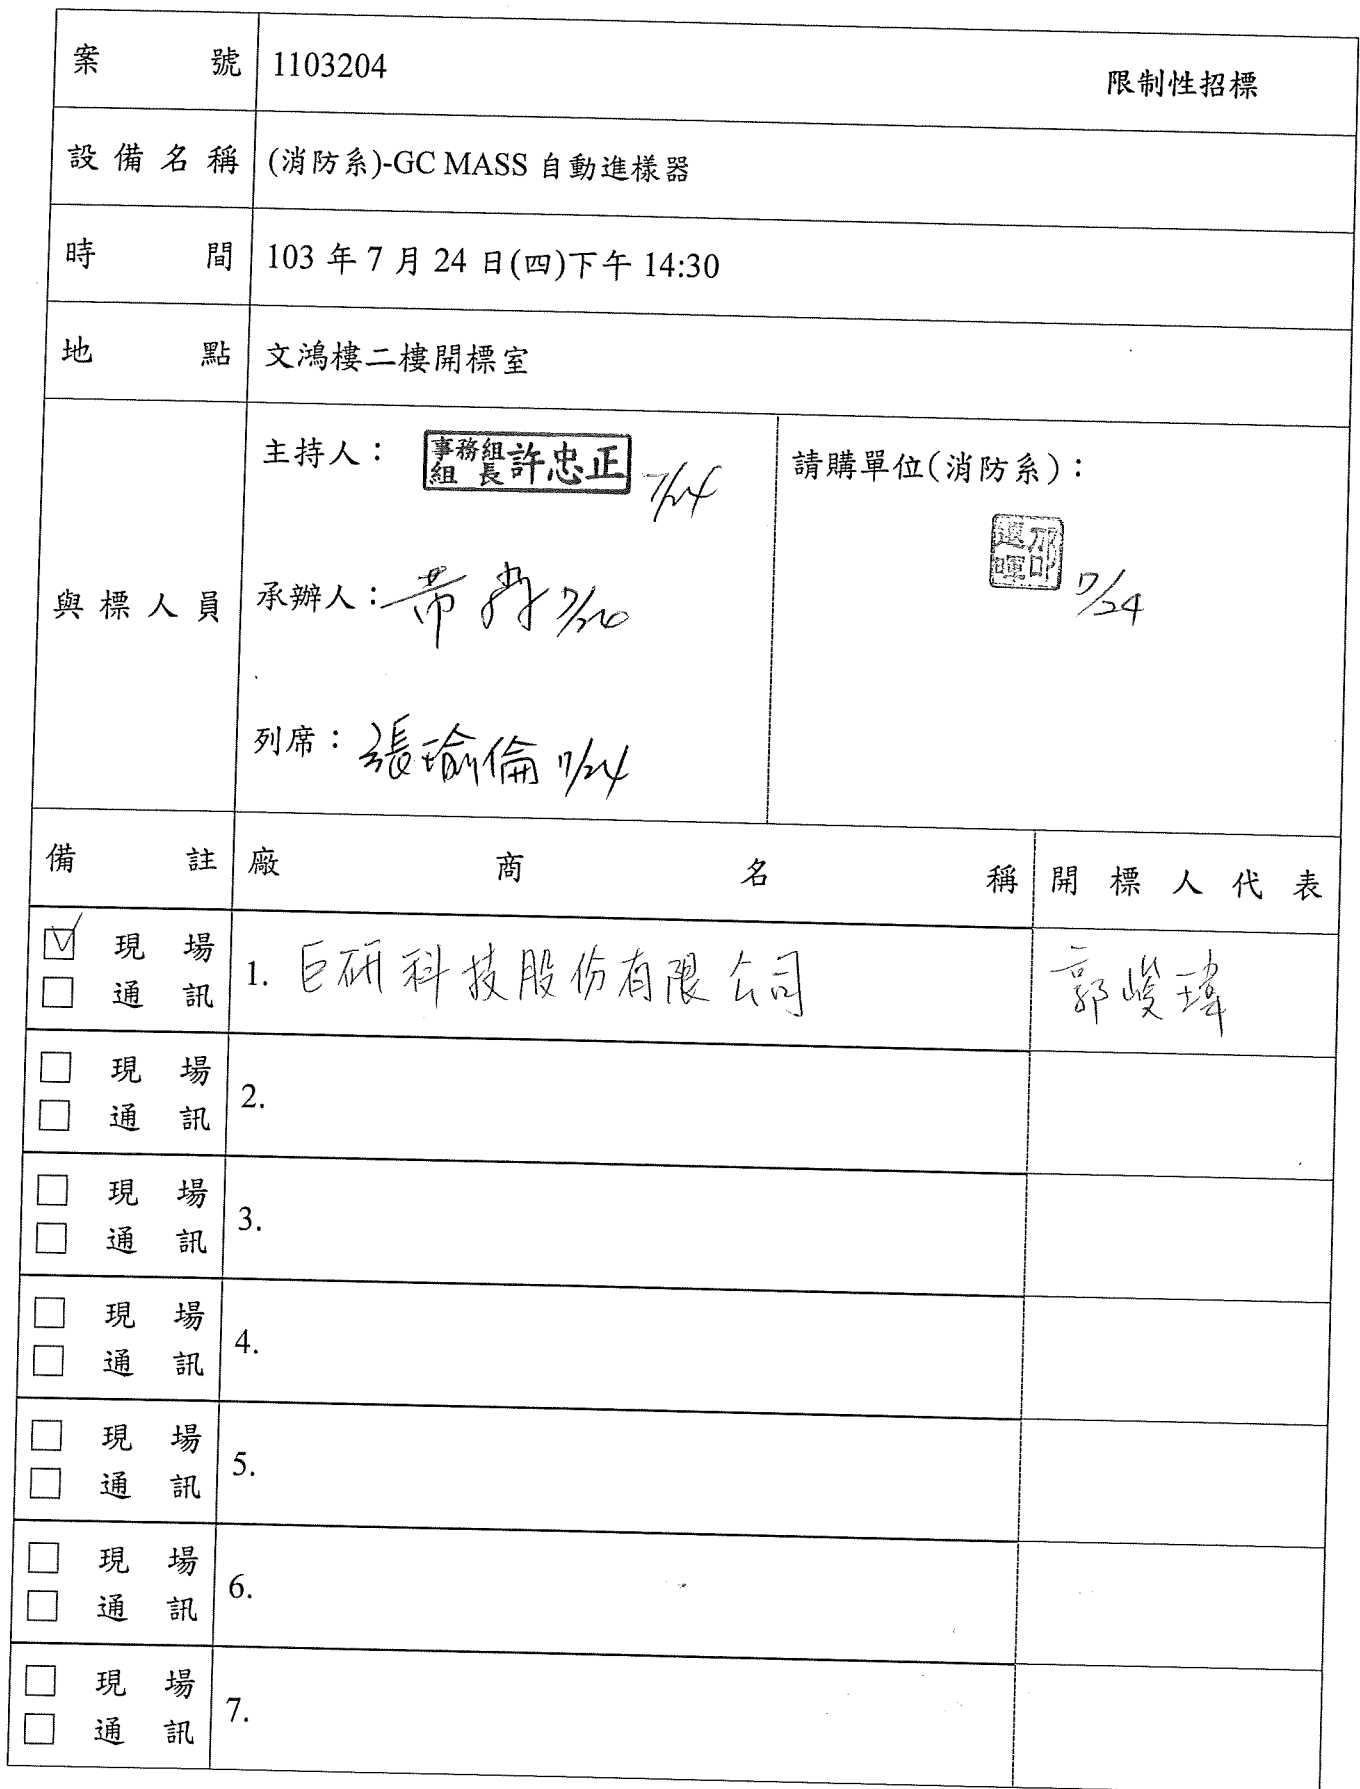 案號 1103204 限制性招標
設備名稱 (消防系)-GC MASS 自動進樣器
時間 103 年 7 月 24 日(四)下午 14:30
地點 文鴻樓二樓開標室
與標人員
主持人：事務組組長許忠正 7/24
請購單位(消防系)：
7/24
承辦人：
列席：張瑜倫 7/24
備註 廠商名稱 開標人代表
☑ 現場
□ 通訊
1. 巨研科技股份有限公司 郭峻瑋
□ 現場
□ 通訊
2.
□ 現場
□ 通訊
3.
□ 現場
□ 通訊
4.
□ 現場
□ 通訊
5.
□ 現場
□ 通訊
6.
□ 現場
□ 通訊
7.